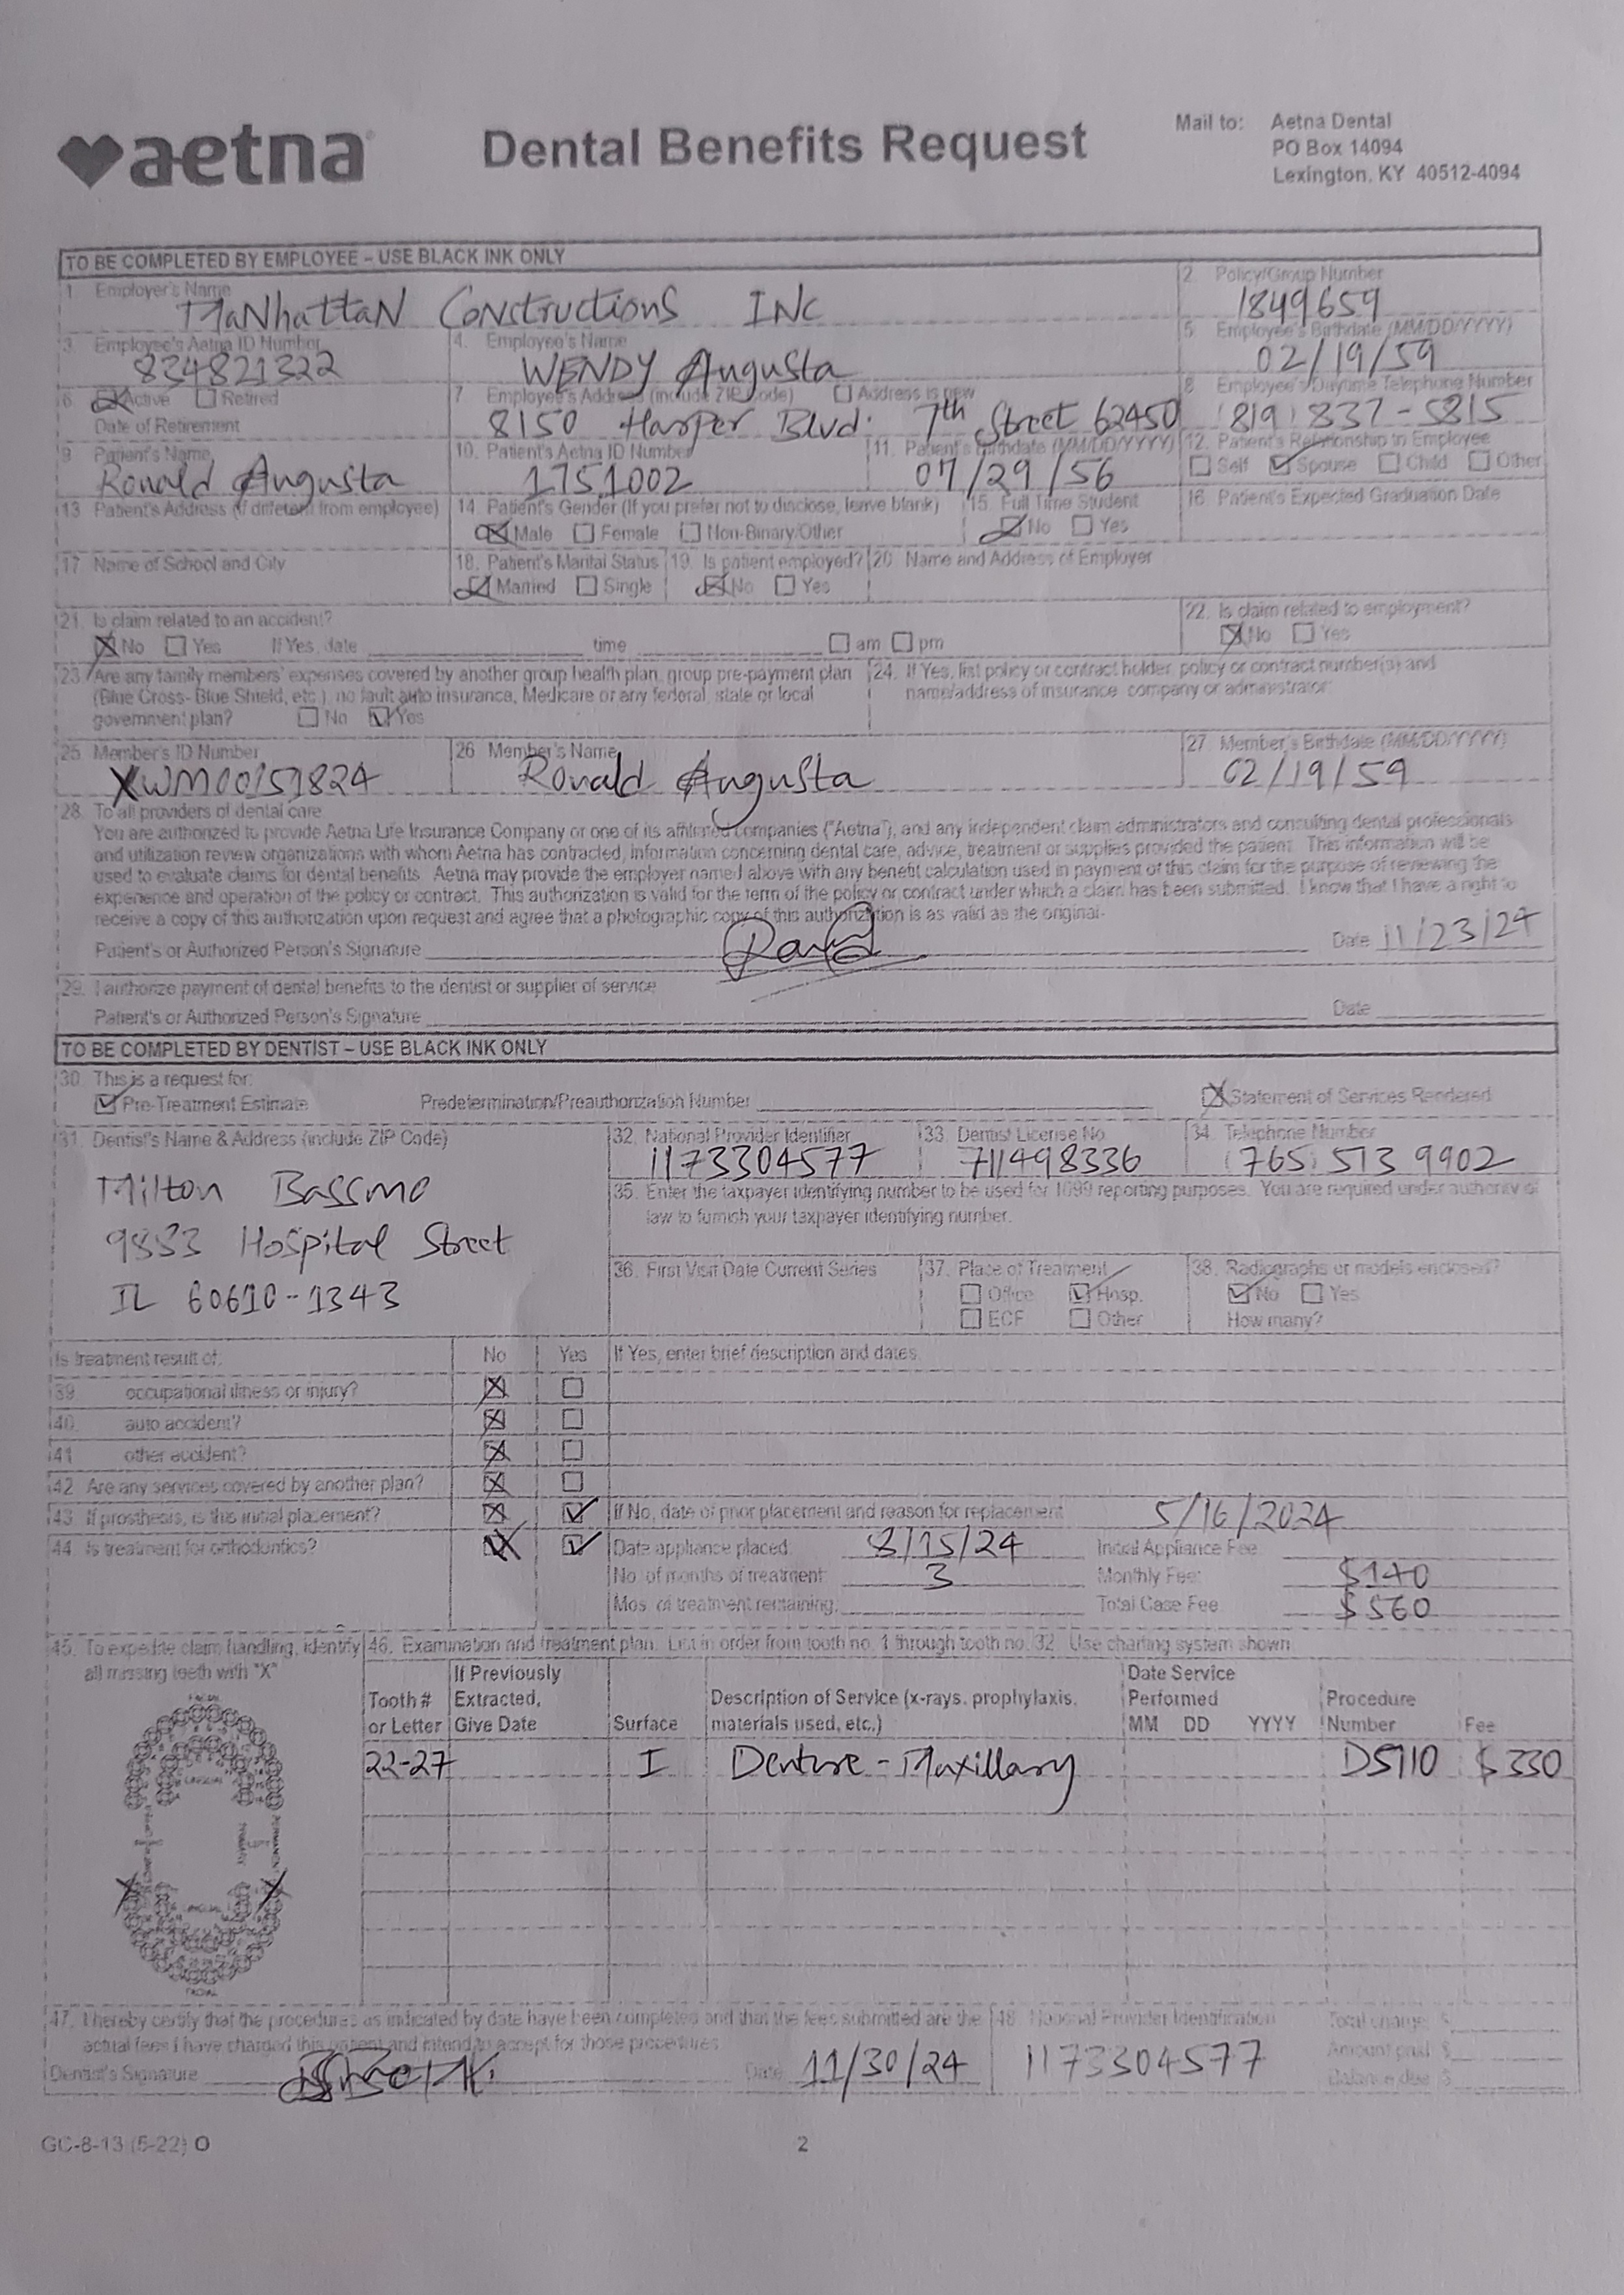 aetna
Dental Benefits Request
Mail to: Aetna Dental
PO Box 14094
Lexington, KY 40512-4094
TO BE COMPLETED BY EMPLOYEE – USE BLACK INK ONLY
1 Employer's Name
Manhattan Constructions INC
2. Policy/Group Number
1849659
3. Employee's Aetna ID Number
834821322
4. Employee's Name
WENDY Augusta
5. Employee's Birthdate (MM/DD/YYYY)
02/19/59
6. Active Retired
Date of Retirement
7 Employee's Address (include ZIP Code) Address is new
8150 Harper Blvd. 7th Street 62450
8 Employee's Daytime Telephone Number
(819) 837-5815
9 Patient's Name
Ronald Augusta
10. Patient's Aetna ID Number
1751002
11. Patient's Birthdate (MM/DD/YYYY)
07/29/56
12. Patient's Relationship to Employee
Self Spouse Child Other
13 Patient's Address (if different from employee)
14. Patient's Gender (If you prefer not to disclose, leave blank)
Male Female Non-Binary/Other
15. Full Time Student
No Yes
16. Patient's Expected Graduation Date
17. Name of School and City
18. Patient's Marital Status
Married Single
19. Is patient employed?
No Yes
20. Name and Address of Employer
21. Is claim related to an accident?
No Yes If Yes, date time am pm
22. Is claim related to employment?
No Yes
23. Are any family members' expenses covered by another group health plan, group pre-payment plan
(Blue Cross- Blue Shield, etc.), no fault auto insurance, Medicare or any federal, state or local
government plan? No Yes
24. If Yes, list policy or contract holder, policy or contract number(s) and
name/address of insurance company or administrator:
25. Member's ID Number
XWM00151824
26 Member's Name
Ronald Augusta
27. Member's Birthdate (MM/DD/YYYY)
02/19/59
28. To all providers of dental care
You are authorized to provide Aetna Life Insurance Company or one of its affiliated companies ("Aetna"), and any independent claim administrators and consulting dental professionals
and utilization review organizations with whom Aetna has contracted, information concerning dental care, advice, treatment or supplies provided the patient. This information will be
used to evaluate claims for dental benefits. Aetna may provide the employer named above with any benefit calculation used in payment of this claim for the purpose of reviewing the
experience and operation of the policy or contract. This authorization is valid for the term of the policy or contract under which a claim has been submitted. I know that I have a right to
receive a copy of this authorization upon request and agree that a photographic copy of this authorization is as valid as the original.
Patient's or Authorized Person's Signature Date 11/23/24
29. I authorize payment of dental benefits to the dentist or supplier of service
Patient's or Authorized Person's Signature Date
TO BE COMPLETED BY DENTIST – USE BLACK INK ONLY
30. This is a request for:
Pre-Treatment Estimate Predetermination/Preauthorization Number Statement of Services Rendered
31. Dentist's Name & Address (include ZIP Code)
Milton Bassmo
9883 Hospital Street
IL 60610-1343
32. National Provider Identifier
1173304577
33. Dentist License No.
711498336
34. Telephone Number
(765) 513 9902
35. Enter the taxpayer identifying number to be used for 1099 reporting purposes. You are required under authority of
law to furnish your taxpayer identifying number.
36. First Visit Date Current Series
37. Place of Treatment
Office Hosp.
ECF Other
38. Radiographs or models enclosed?
No Yes
How many?
Is treatment result of: No Yes If Yes, enter brief description and dates.
39 occupational illness or injury?
40. auto accident?
41 other accident?
42 Are any services covered by another plan?
43. If prosthesis, is this initial placement? If No, date of prior placement and reason for replacement 5/16/2024
44. Is treatment for orthodontics? Date appliance placed: 8/15/24 Initial Appliance Fee
No. of months of treatment: 3 Monthly Fee: $140
Mos. of treatment remaining: Total Case Fee $560
45. To expedite claim handling, identify
all missing teeth with "X"
FACIAL
LINGUAL
PERMANENT
PRIMARY
LINGUAL
FACIAL
46. Examination and treatment plan. List in order from tooth no. 1 through tooth no. 32. Use charting system shown.
Tooth # or Letter
If Previously Extracted, Give Date
Surface
Description of Service (x-rays, prophylaxis, materials used, etc.)
Date Service Performed MM DD YYYY
Procedure Number
Fee
22-27 I Denture-Maxillary D5110 $330
47. I hereby certify that the procedures as indicated by date have been completed and that the fees submitted are the
actual fees I have charged this patient and intend to accept for those procedures.
Dentist's Signature Date 11/30/24
48. National Provider Identification
1173304577
Total charge $
Amount paid $
Balance due $
GC-8-13 (5-22) O
2